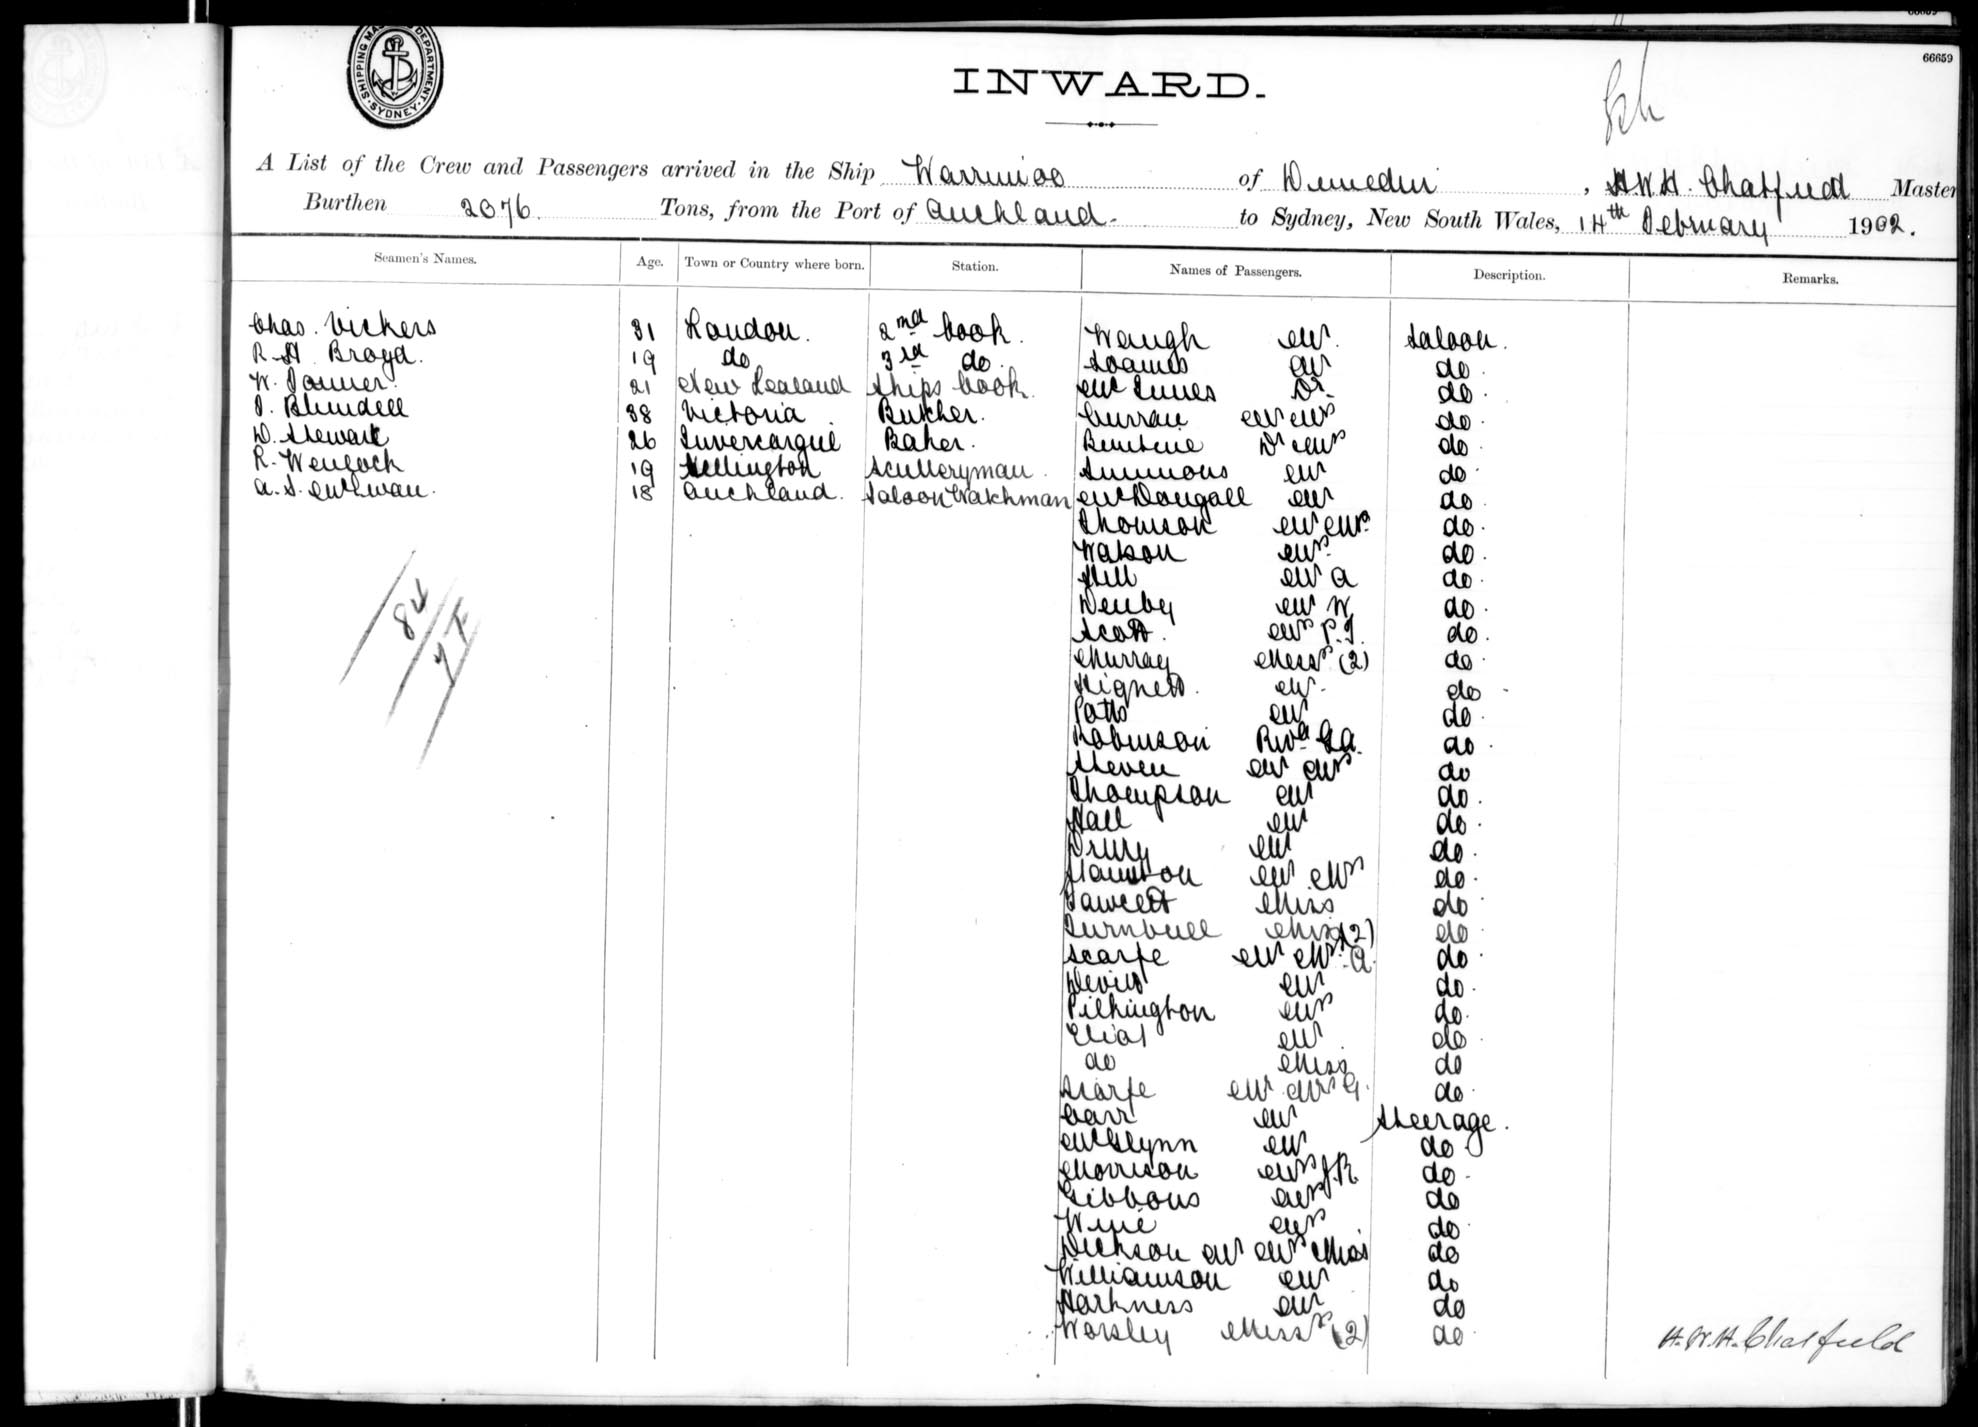 66659
SHIPPING MA DEPARTMENT. SYDNEY.
INWARD.
A List of the Crew and Passengers arrived in the Ship Warrimoo of Dunedin, H.W.H. Chatfield Master
Burthen 2076 Tons, from the Port of Auckland. to Sydney, New South Wales, 14th February 1902.
Seamen's Names. Age. Town or Country where born. Station. Names of Passengers. Description. Remarks.
Chas. Vickers 31 London. 2nd Cook. Waugh Mr Saloon.
R H Broyd. 19 do 3rd do. Soames Mr do.
W. 21 New Zealand Ships Cook Mc Innes Dr do.
J. Blundell 38 Victoria Butcher. Curran Mr Mrs do.
D. Stewart 26 Invercargill Baker. Dr Mrs do.
R. Wenlock 19 Wellington Sculleryman. Simmons Mr do
A. S. 18 Auckland. Saloon Watchman McDougall Mr do.
Thomson Mr Mrs do.
Watson Mrs do.
Hill Mr A do.
Denby Mr W do.
Scott. Mrs P.J. do.
Murray Messrs (2) do.
Hignett. Mr. do.
Potts Mr do.
Robinson Revd GA. do.
Steven Mr Mrs do
Thompson Mr do.
Hall Mr do.
Drury Mr do.
Mr Mrs do.
Fawcett Miss do
Turnbull Miss (2) do
Scarfe Mr Mrs A. do.
Mr do.
Pilkington Mrs do.
Mr do.
do Miss do
Scarfe Mr Mrs G. do.
Carr Mr Steerage.
McGlynn Mr do
Morrison Mrs J.R. do.
Gibbons Mrs do
Mrs do
Dickson Mr Mrs Miss do
Williamson Mr do
Harkness Mr do
Worsley Messrs (2) do
84
H.W.H. Chatfield